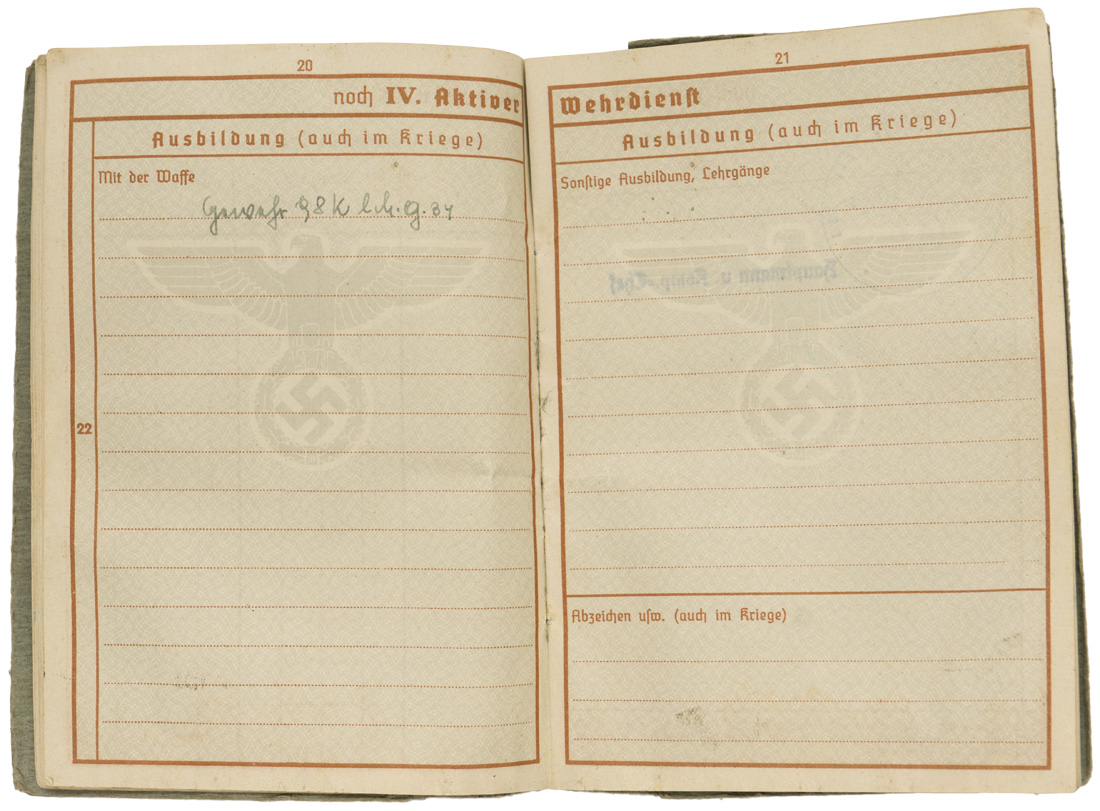 20
noch IV. Aktiver
Ausbildung (auch im Kriege)
Mit der Waffe
Gewehr 98K l.M.G. 34
22
21
Wehrdienst
Ausbildung (auch im Kriege)
Sonstige Ausbildung, Lehrgänge
Hauptmann u. Komp.-Chef
Abzeichen usw. (auch im Kriege)